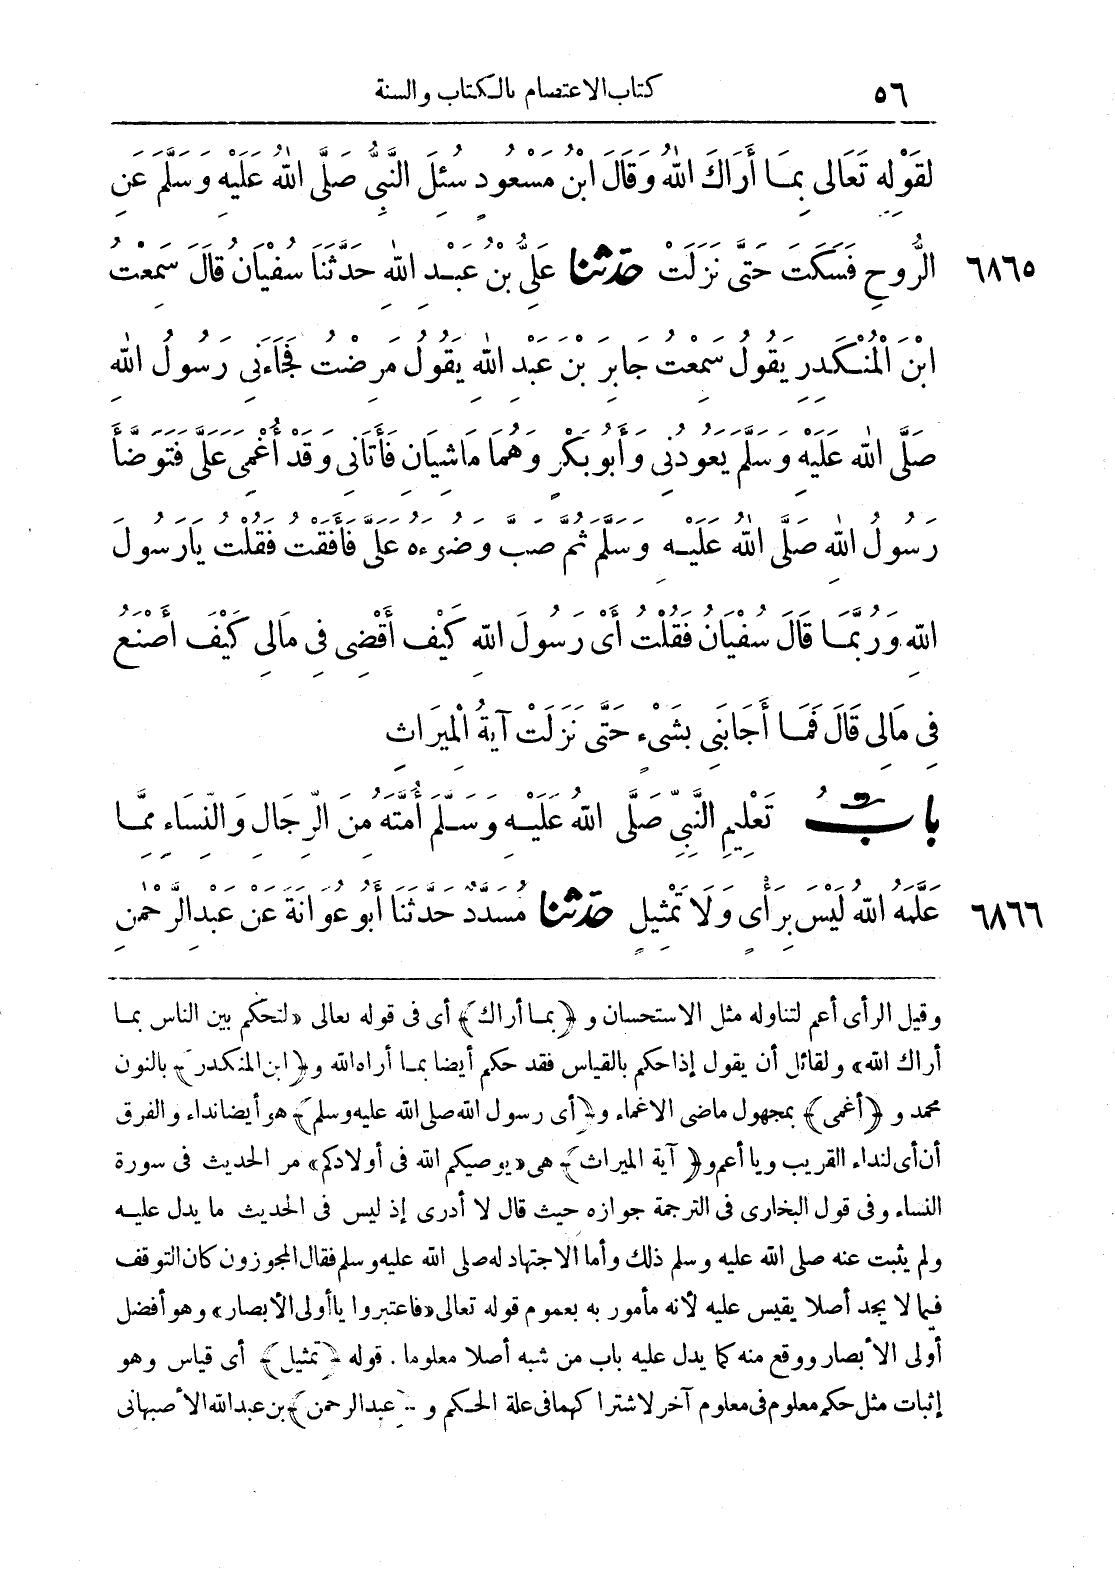 ٥٦ كتاب الاعتصام بالكتاب والسنة
لِقَوْلِهِ تَعَالَى بِمَا أَرَاكَ اللهُ وَقَالَ ابْنُ مَسْعُودٍ سُئِلَ النَّبِيُّ صَلَّى اللهُ عَلَيْهِ وَسَلَّمَ عَنِ
٦٨٦٥ الرُّوحِ فَسَكَتَ حَتَّى نَزَلَتْ حَدَّثَنَا عَلِيُّ بْنُ عَبْدِ اللهِ حَدَّثَنَا سُفْيَانُ قَالَ سَمِعْتُ
ابْنَ الْمُنْكَدِرِ يَقُولُ سَمِعْتُ جَابِرَ بْنَ عَبْدِ اللهِ يَقُولُ مَرِضْتُ فَجَاءَنِي رَسُولُ اللهِ
صَلَّى اللهُ عَلَيْهِ وَسَلَّمَ يَعُودُنِي وَأَبُو بَكْرٍ وَهُمَا مَاشِيَانِ فَأَتَانِي وَقَدْ أُغْمِيَ عَلَيَّ فَتَوَضَّأَ
رَسُولُ اللهِ صَلَّى اللهُ عَلَيْهِ وَسَلَّمَ ثُمَّ صَبَّ وَضُوءَهُ عَلَيَّ فَأَفَقْتُ فَقُلْتُ يَا رَسُولَ
اللهِ وَرُبَّمَا قَالَ سُفْيَانُ فَقُلْتُ أَيْ رَسُولَ اللهِ كَيْفَ أَقْضِي فِي مَالِي كَيْفَ أَصْنَعُ
فِي مَالِي قَالَ فَمَا أَجَابَنِي بِشَيْءٍ حَتَّى نَزَلَتْ آيَةُ الْمِيرَاثِ
بَابُ تَعْلِيمِ النَّبِيِّ صَلَّى اللهُ عَلَيْهِ وَسَلَّمَ أُمَّتَهُ مِنَ الرِّجَالِ وَالنِّسَاءِ مِمَّا
٦٨٦٦ عَلَّمَهُ اللهُ لَيْسَ بِرَأْيٍ وَلَا تَمْثِيلٍ حَدَّثَنَا مُسَدَّدٌ حَدَّثَنَا أَبُو عَوَانَةَ عَنْ عَبْدِ الرَّحْمٰنِ
وقيل الرأى أعم لتناوله مثل الاستحسان و ﴿بما أراك﴾ أى فى قوله تعالى «لتحكم بين الناس بما
أراك الله» ولقائل أن يقول إذا حكم بالقياس فقد حكم أيضا بما أراه الله و﴿ابن المنكدر﴾ بالنون
محمد و ﴿أغمى﴾ بمجهول ماضى الاغماء و﴿أى رسول الله صلى الله عليه وسلم﴾ هو أيضا نداء والفرق
أن أى لنداء القريب ويا أعم و﴿آية الميراث﴾ هى «يوصيكم الله فى أولادكم» مر الحديث فى سورة
النساء وفى قول البخارى فى الترجمة جوازه حيث قال لا أدرى إذ ليس فى الحديث ما يدل عليه
ولم يثبت عنه صلى الله عليه وسلم ذلك وأما الاجتهاد له صلى الله عليه وسلم فقال المجوزون كان التوقف
فيما لا يجد أصلا يقيس عليه لأنه مأمور به بعموم قوله تعالى «فاعتبروا يا أولى الأبصار» وهو أفضل
أولى الأبصار ووقع منه كما يدل عليه باب من شبه أصلا معلوما . قوله ﴿تمثيل﴾ أى قياس وهو
إثبات مثل حكم معلوم فى معلوم آخر لاشتراكهما فى علة الحكم و ﴿عبد الرحمن﴾ بن عبد الله الأصبهانى